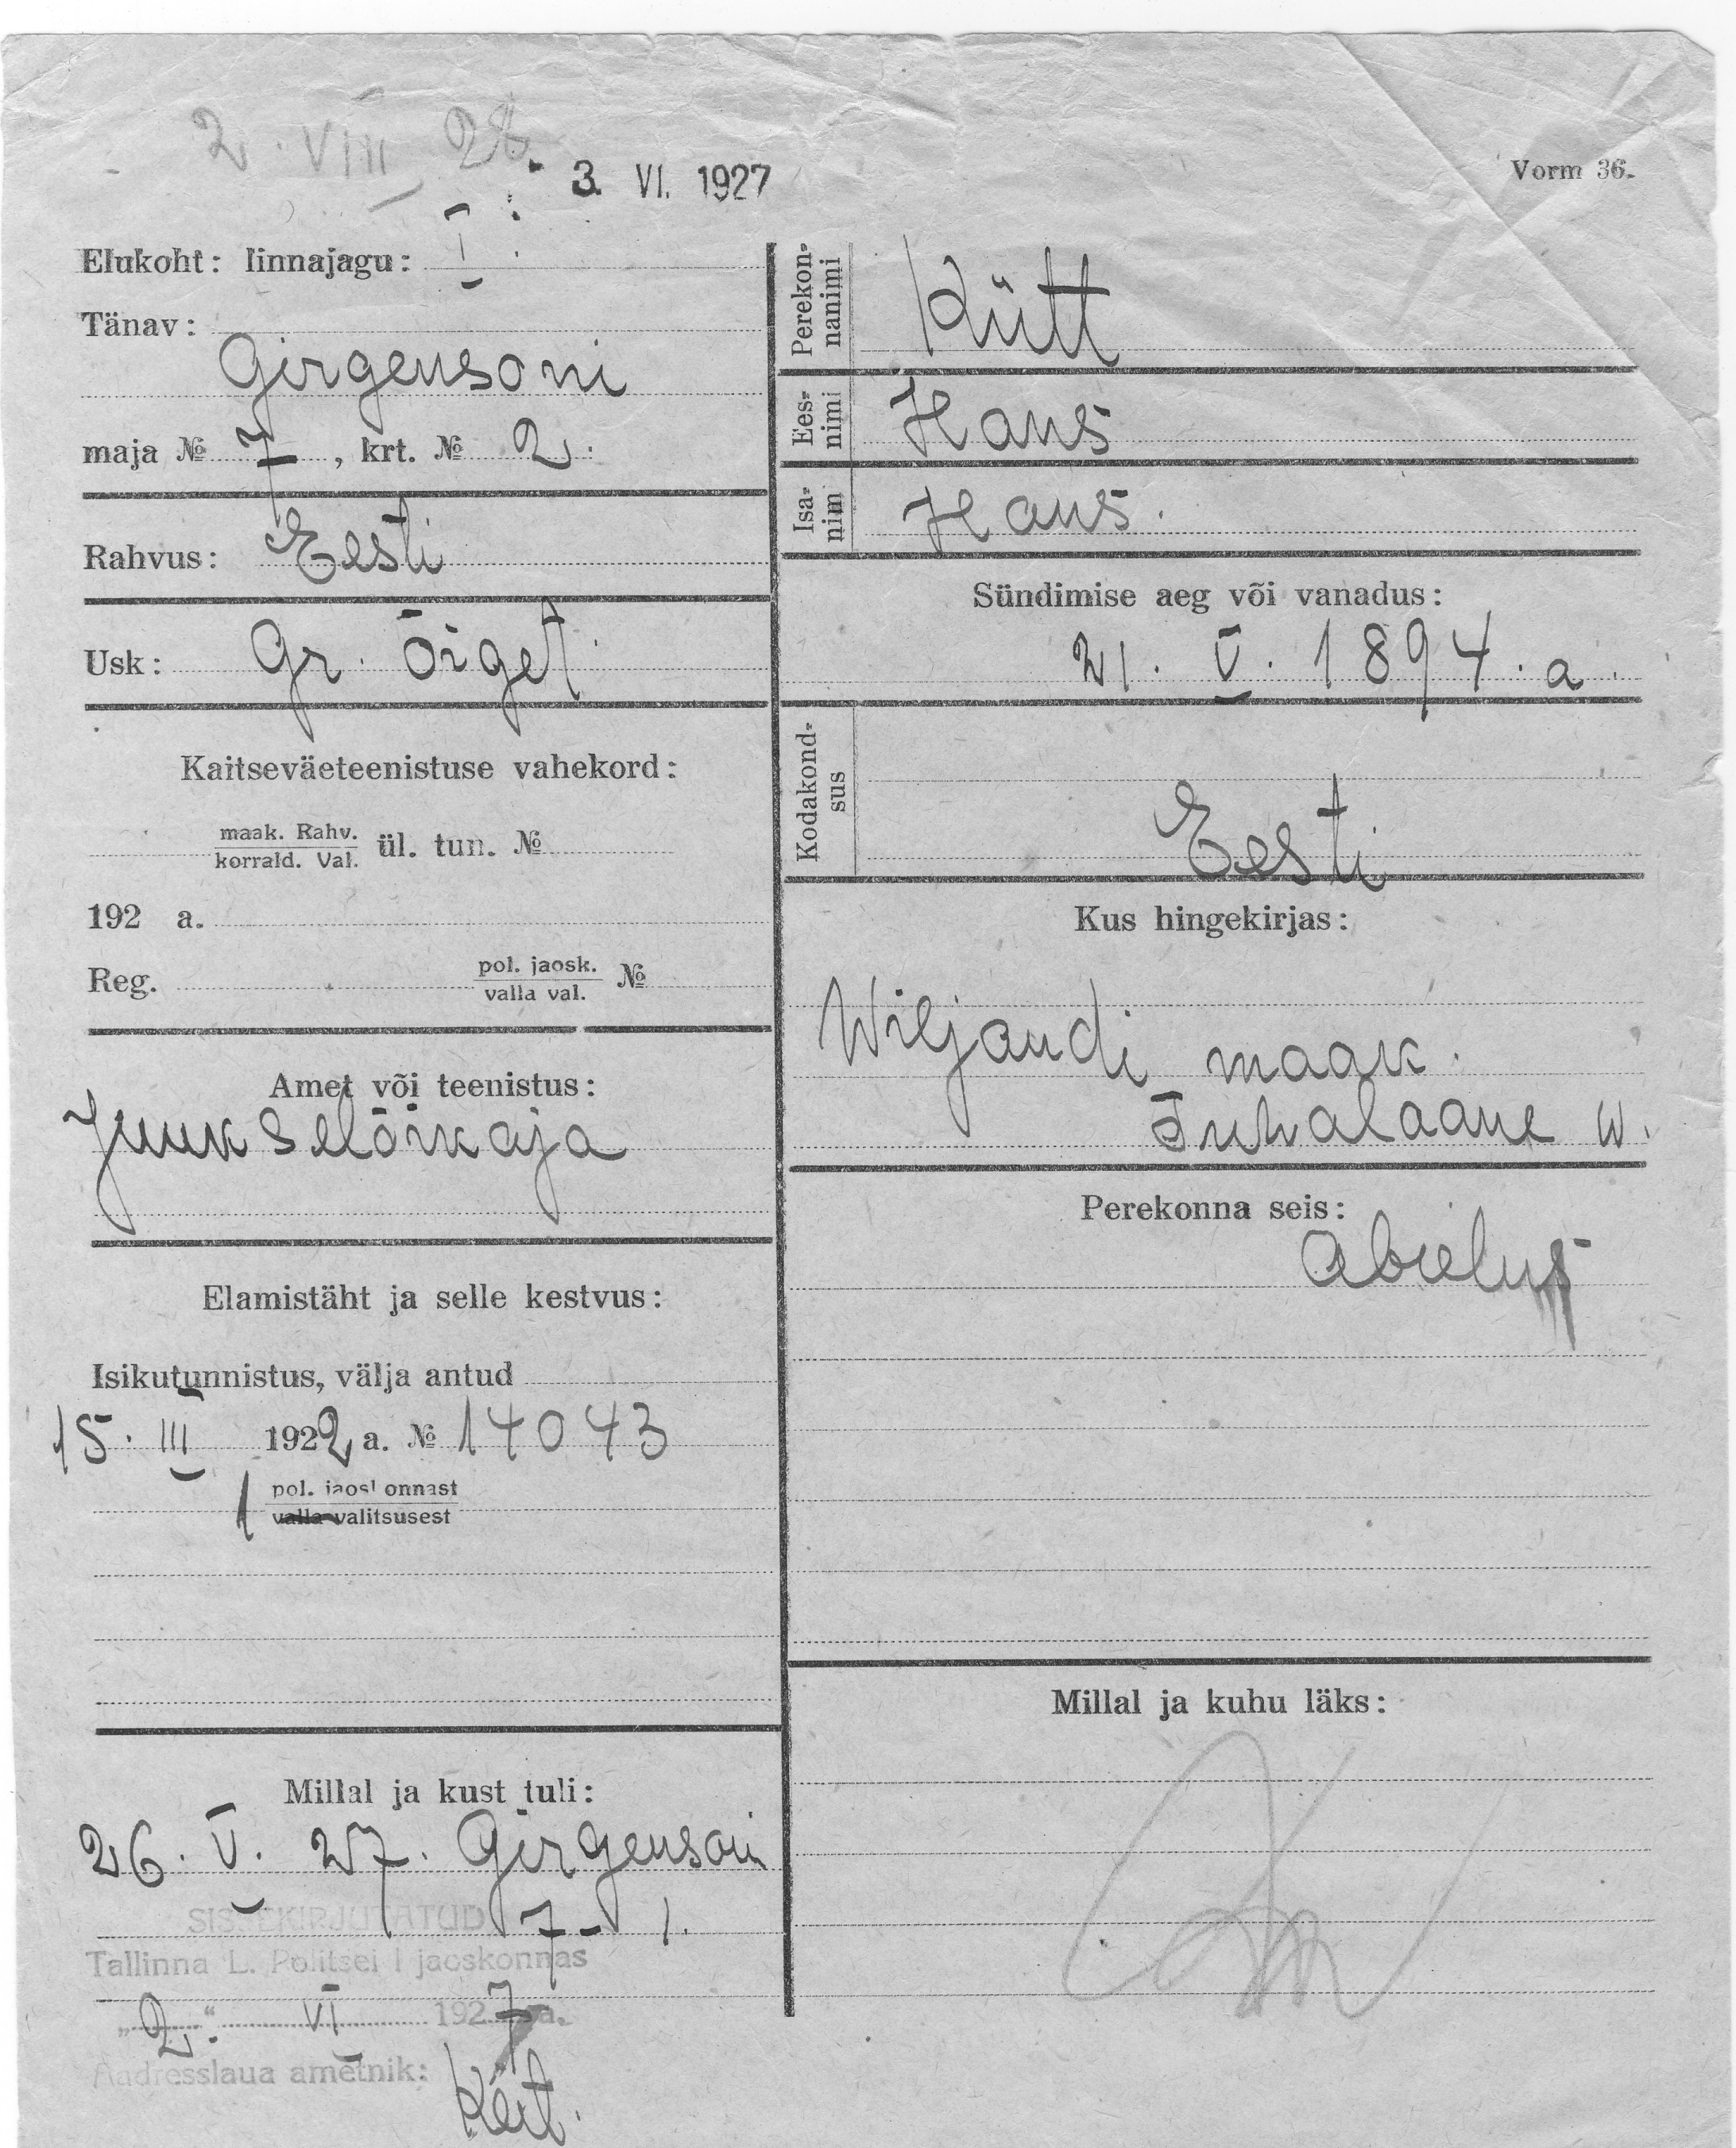 2. VIII 28.
3. VI. 1927
Vorm 36.
Elukoht: linnajagu: I
Tänav:
Girgensoni
maja № 7, krt. № 2.
Rahvus: Eesti
Usk: Gr. Õiget.
Kaitseväeteenistuse vahekord:
maak. Rahv.
korrald. Val. ül. tun. №
192 a.
Reg. pol. jaosk.
valla val. №
Amet või teenistus:
Juukselõikaja
Elamistäht ja selle kestvus:
Isikutunnistus, välja antud
15. III 1922 a. № 14043
1 pol. jaoskonnast
valla valitsusest
Millal ja kust tuli:
26. V. 27. Girgensoni
7-1.
SISSEKIRJUTATUD
Tallinna L. Politsei I jaoskonnas
„2." VI 1927 a.
Aadresslaua ametnik:
Perekon-
nanimi
Kütt
Ees-
nimi
Hans
Isa-
nim
Hans.
Sündimise aeg või vanadus:
21. V. 1894. a.
Kodakond-
sus
Eesti
Kus hingekirjas:
Wiljandi maak.
Tuhalaane w.
Perekonna seis:
Abielus
Millal ja kuhu läks: